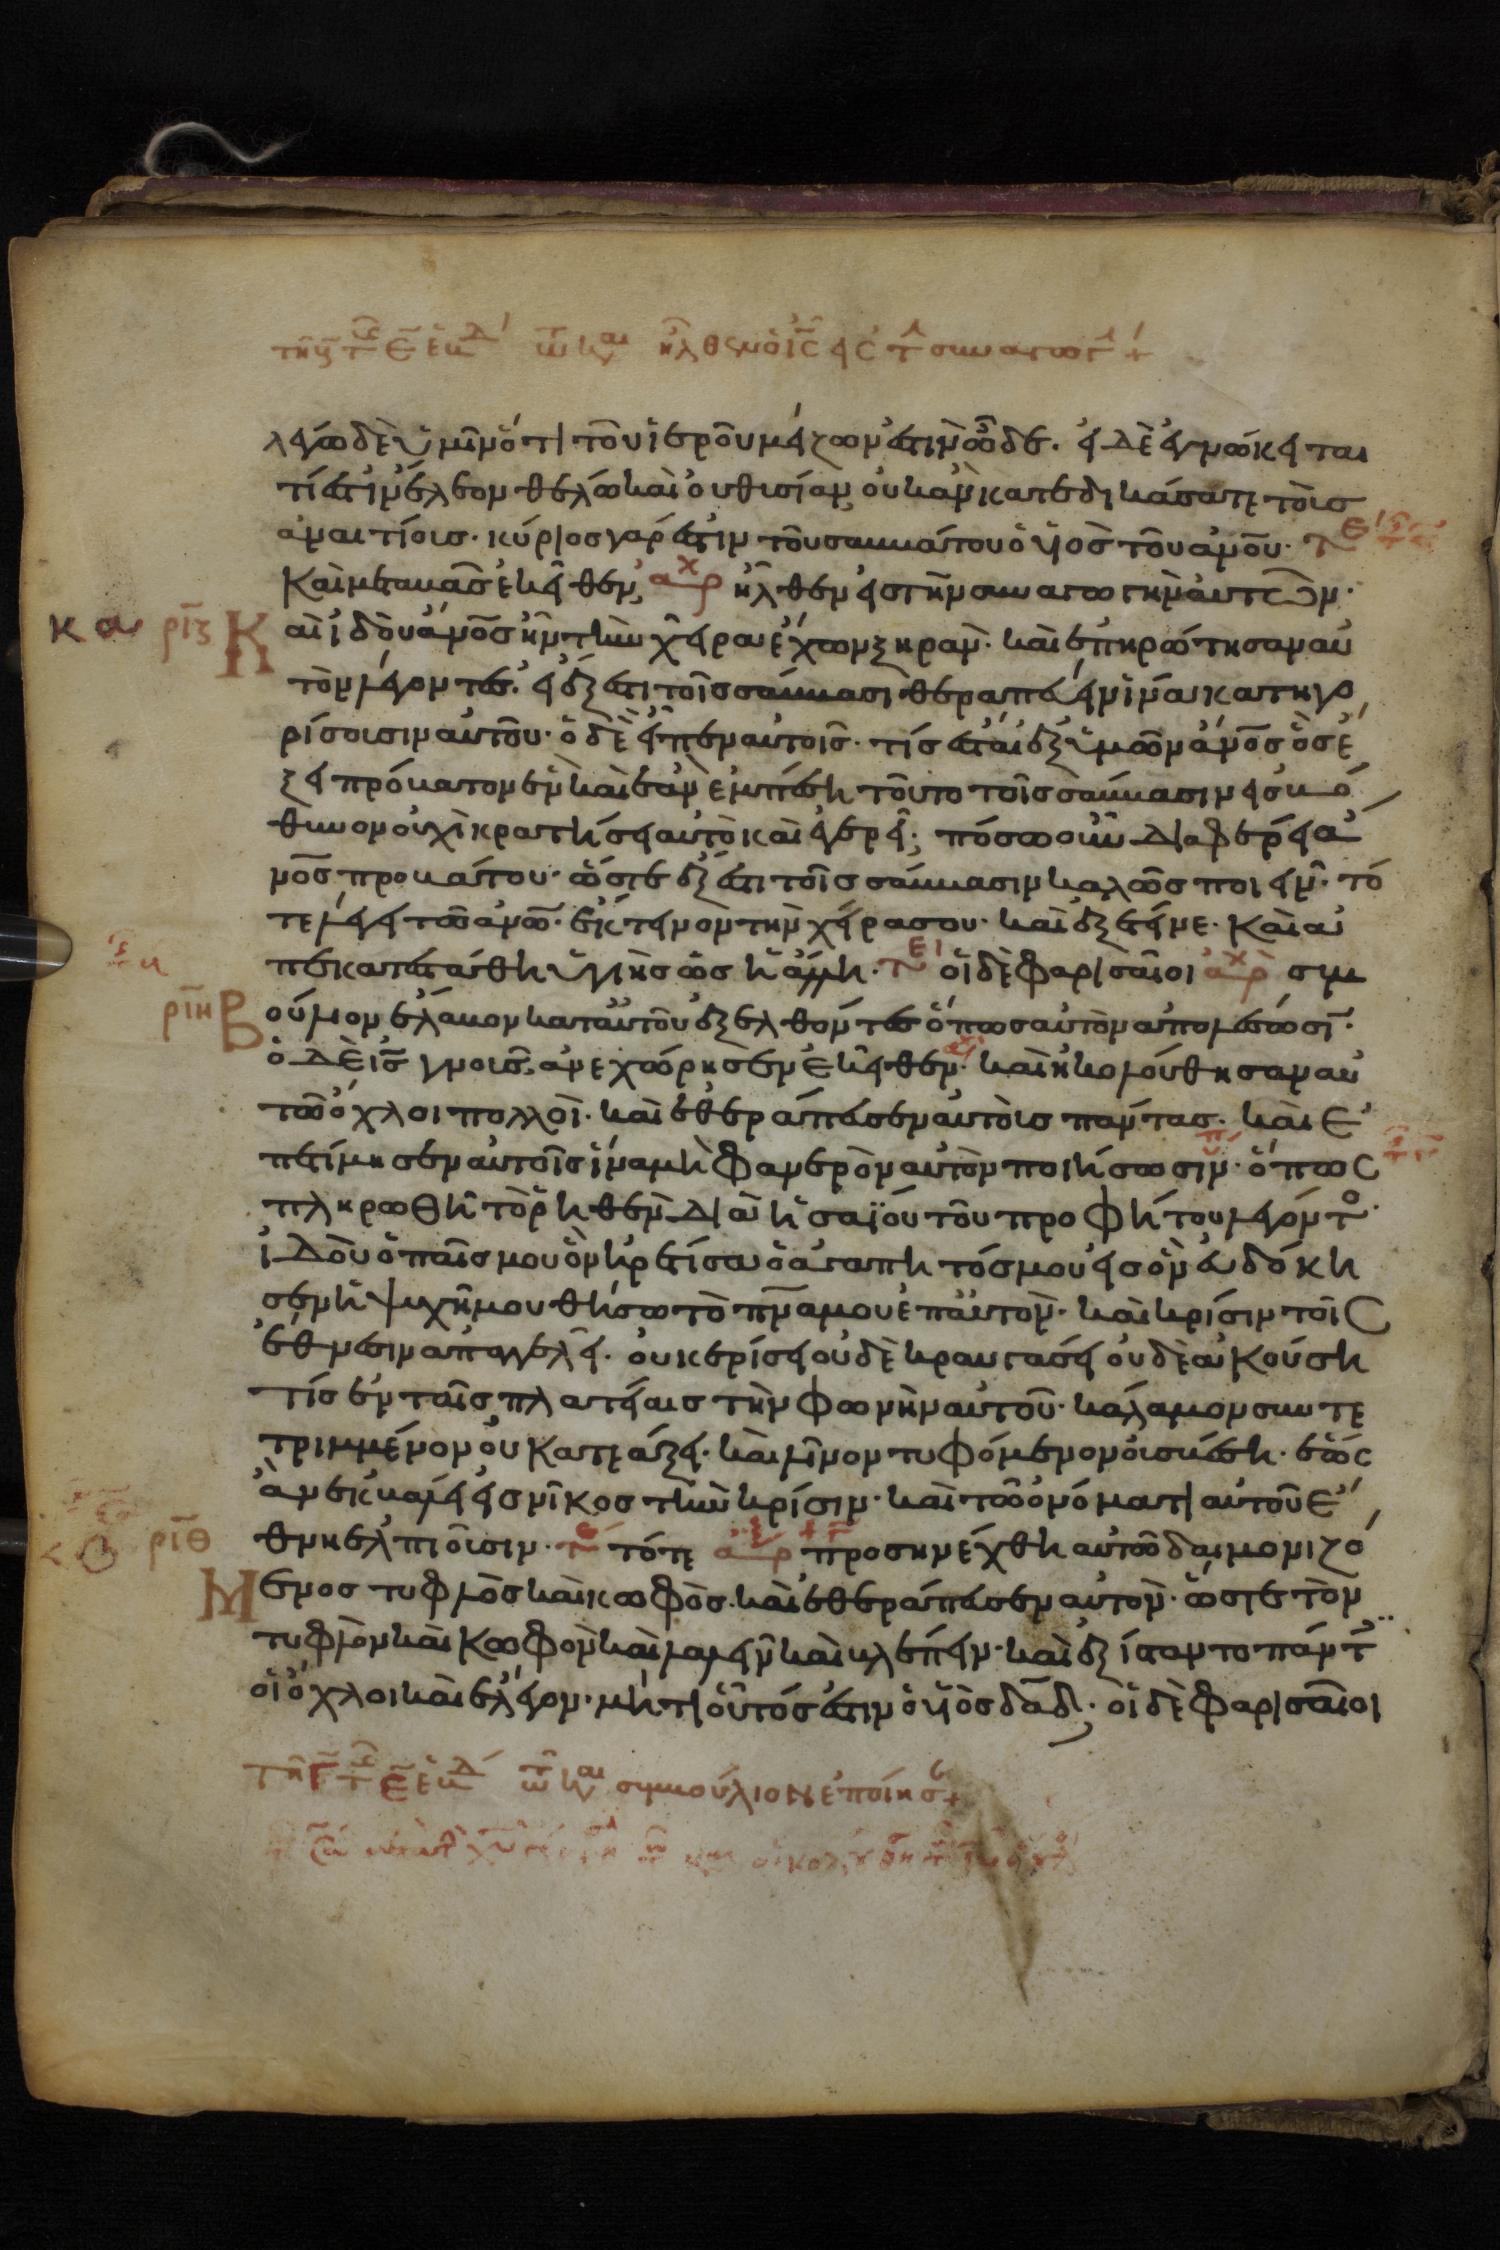 τῆ ϛ τ ε ἑβδ τῶ κ ἦλθεν ὁ ις εις τ συναγωγ +
λέγω δὲ ὑμῖν ὅτι τοῦ ἱεροῦ μείζων ἐστὶν ὧδε· εἰ δὲ ἐγνώκειται
τί ἐστιν ἔλεον θέλω καὶ οὐ θυσίαν οὐκ ἂν κατεδικάσατε τοὺς
ἀναιτίους· κύριος γάρ ἐστιν τοῦ σαββάτου ὁ υἱὸς τοῦ ανου· τε
Καὶ μεταβὰς ἐκεῖθεν αρχ ἦλθεν εἰς τὴν συναγωγὴν αὐτῶν·
κα ριζ Καὶ ἰδοὺ ανος ἦν τὴν χεῖρα ἔχων ξηράν· καὶ ἐπηρώτησαν αὐ
τὸν λέγοντες· εἰ ἔξεστι τοῖς σάββασι θεραπεύειν ἵνα κατηγο
ρίσουσιν αὐτοῦ· ὁ δὲ εἶπεν αὐτοῖς· τίς ἔσται ἐξ ὑμῶν ανος ὃς ἕ
ξει πρόβατον ἓν καὶ ἐὰν ἐμπέση τοῦτο τοῖς σάββασιν εἰς βό
θυνον οὐχὶ κρατήσει αὐτὸ καὶ ἐγερεῖ· πόσω οὖν διαφέρει α
νος προβάτου· ὥστε ἔξεστι τοῖς σάββασιν καλῶς ποιεῖν· τό
τε λέγει τῶ ανω· ἔκτεινον τὴν χεῖρα σου· καὶ ἐξέτεινε· Καὶ ἀ
πεκατεστάθη ὑγιὴς ὡς ἡ ἄλλη· τε οἱ δὲ φαρισαῖοι αρχ συμ
ριη Βούλιον ἔλαβον κατ αὐτοῦ ἐξελθόντες ὅπως αὐτὸν ἀπολέσωσι·
ὁ δὲ ις γνοὺς ἀνεχώρησεν ἐκεῖθεν· καὶ ἠκολούθησαν αὐ
τῶ ὄχλοι πολλοὶ· καὶ ἐθεράπευσεν αὐτοὺς πάντας· καὶ ἐ
πετίμησεν αὐτοῖς ἵνα μὴ φανερὸν αὐτὸν ποιήσωσιν· ὅπως
πληρωθῆ τὸ ῥηθὲν διὰ ἡσαΐου τοῦ προφήτου λέγοντο·
ἰδοὺ ὁ παῖς μου ὃν ἡρέτισα ὁ ἀγαπητός μου εἰς ὃν εὐδόκη
σεν ἡ ψυχῆ μου θήσω τὸ πνα μου ἐπ αὐτὸν· καὶ κρίσιν τοῖς
ἔθνεσιν ἀπαγγελεῖ· οὐκ ἐρίσει οὐδὲ κραυγάσει οὐδὲ ἀκούση
τίς ἐν ταῖς πλατείαις τὴν φωνὴν αὐτοῦ· κάλαμον συντε
τριμμένον οὐ κατεάξει· καὶ λῖνον τυφόμενον οὐ σβέση· ἕως
ἂν ἐκβάλει εἰς νῖκος τὴν κρίσιν· καὶ τῶ ὀνόματι αὐτοῦ ἔ
ριθ θνη ἐλπιοῦσιν· τε τότε αρχ προσηνέχθη αὐτῶ δαιμονιζό
Μενος τυφλὸς καὶ κωφὸς· καὶ ἐθεράπευσεν αὐτὸν· ὥστε τὸν
τυφλὸν καὶ κωφὸν καὶ λαλεῖν καὶ βλέπειν· καὶ ἐξίσταντο πάντ
οἱ ὄχλοι καὶ ἔλεγον· μήτι οὗτός ἐστιν ὁ υἱὸς δαδ· οἱ δὲ φαρισαῖοι
τῆ γ τ ε ἑβδ τῶ κ συμβούλιον ἐποίησ +